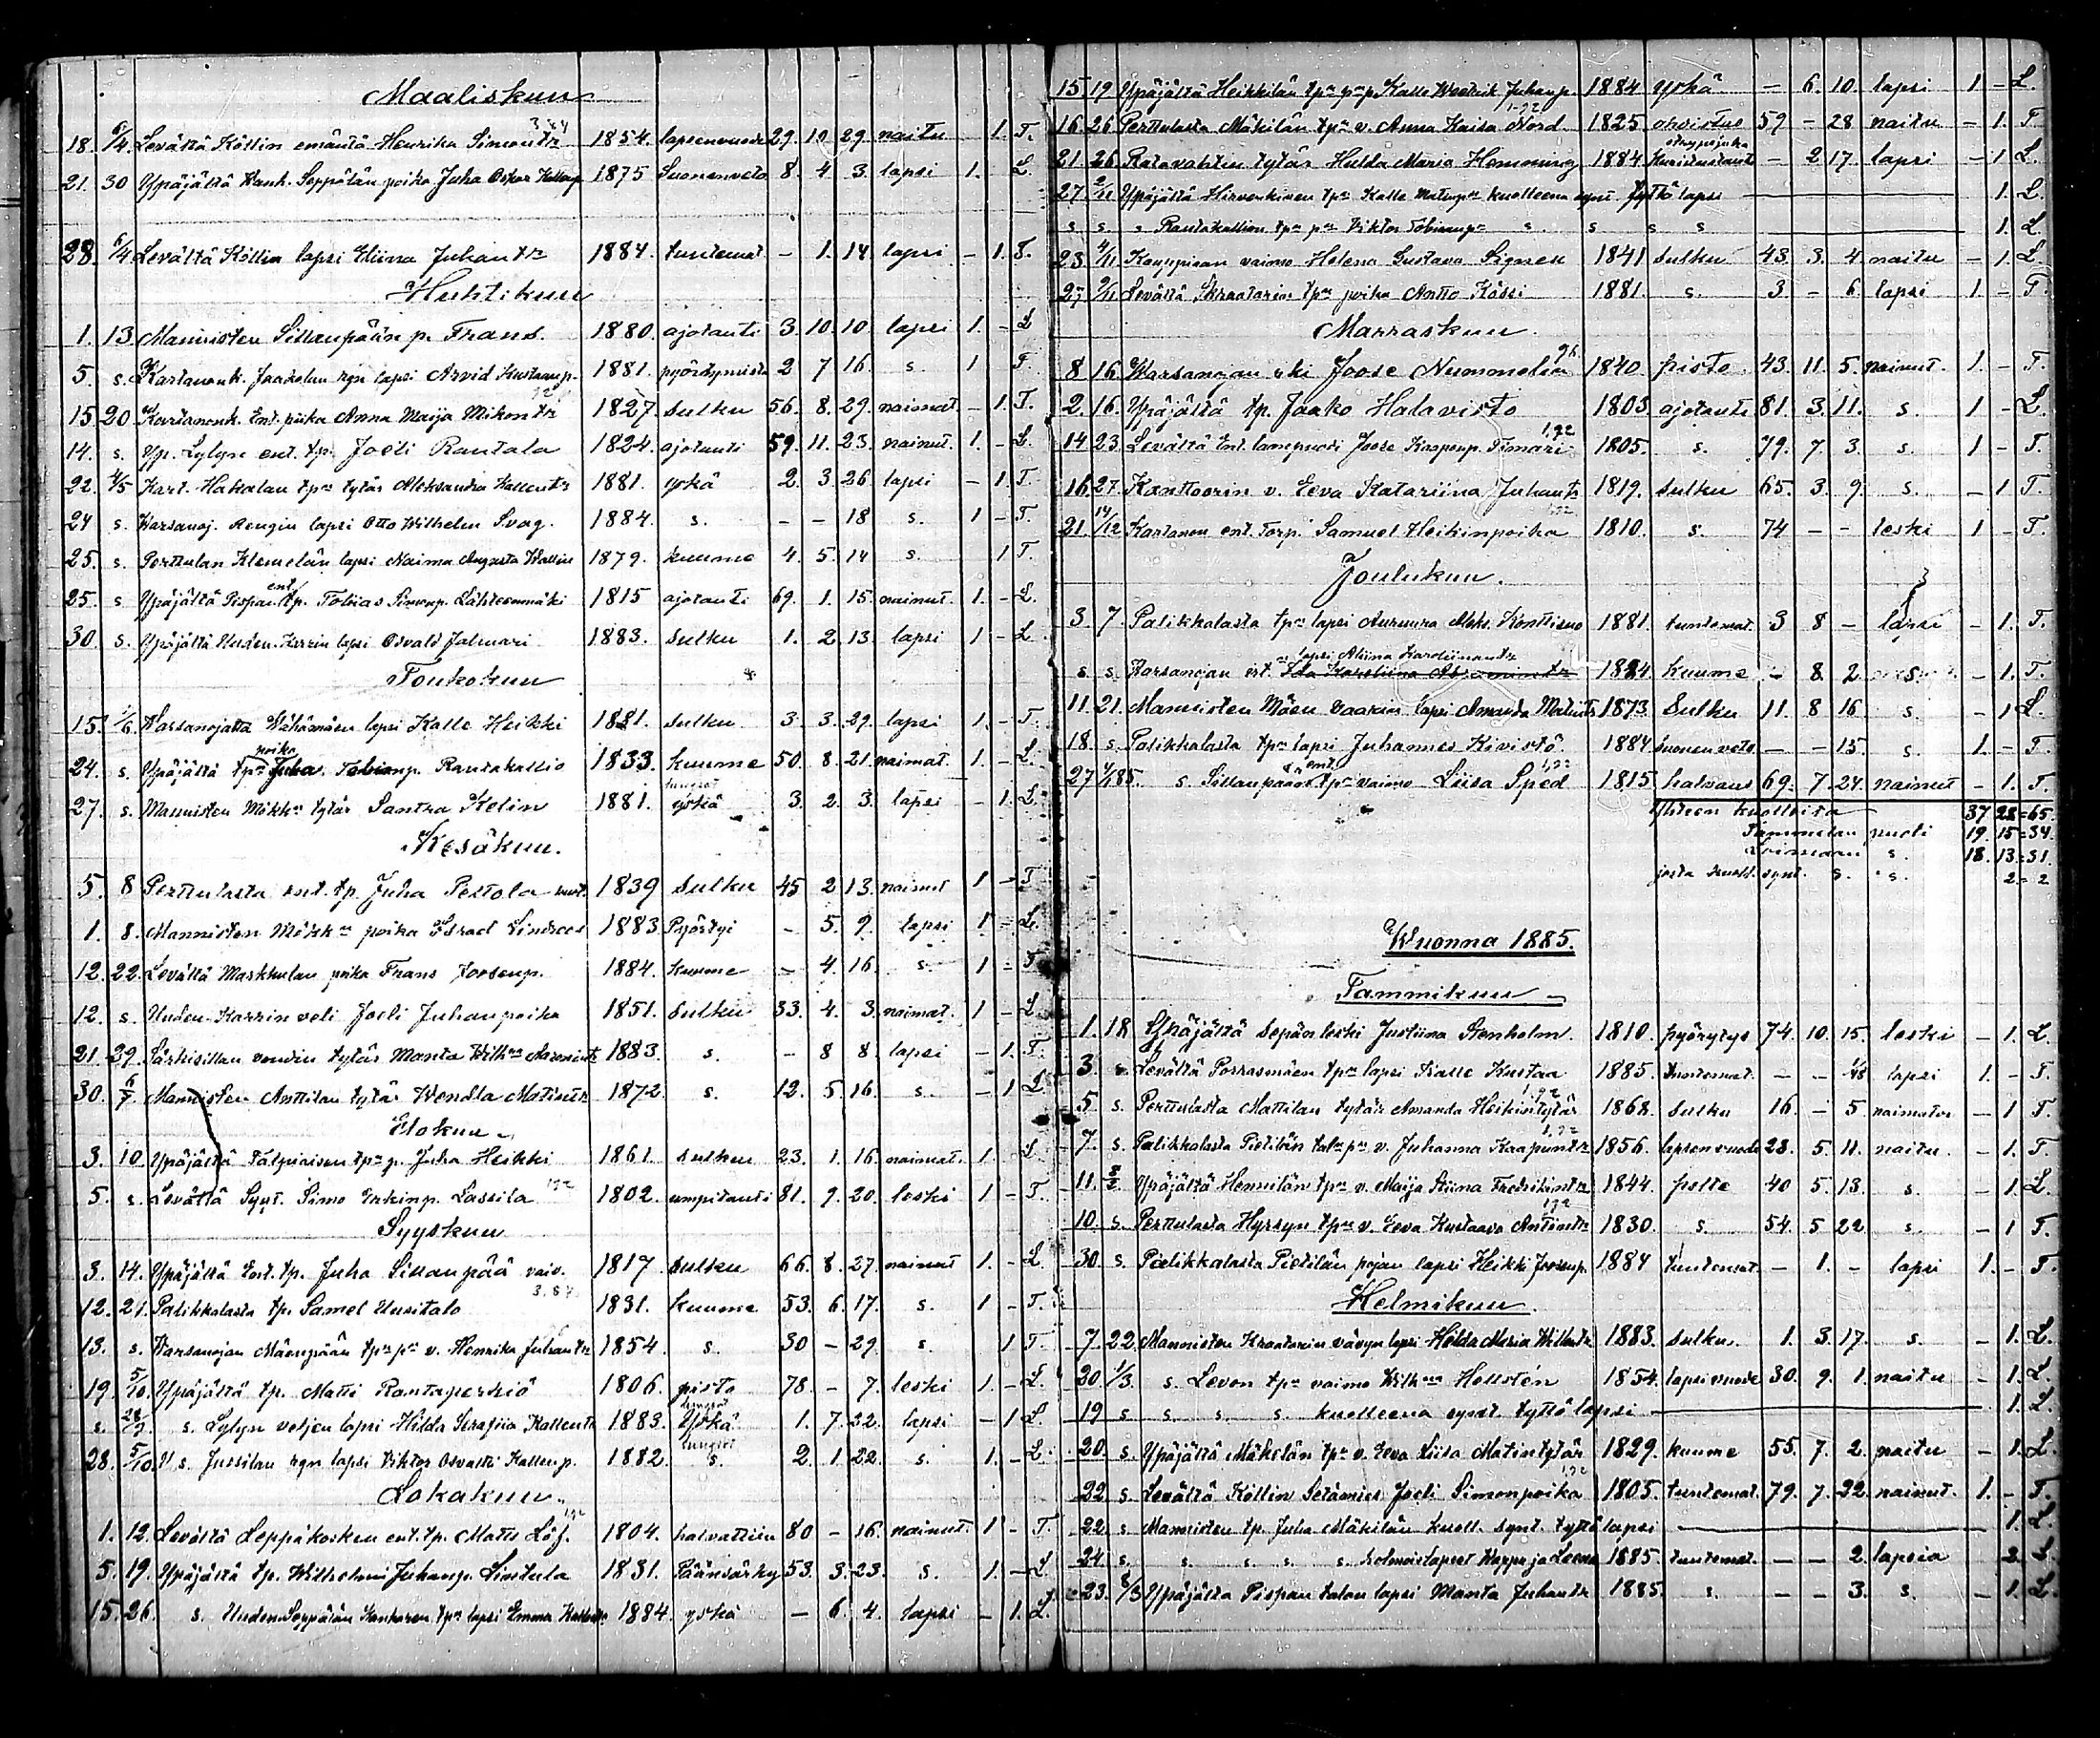 Maaliskuu
18. 6/4. Levältä Köllin emäntä Henrika Simontr 1854. lapsenvuode 29. 10. 29. naitu 1. T.
21. 30 Ypäjältä Kank. Seppälän poika Juha Oskar Kallenp 1875 Suonenveto 8. 4 3. lapsi 1. L.
28. 6/4 Levältä Köllin lapsi Eliina Juhantr 1884. tuntemat. - 1. 14. lapsi - 1. T.
Huhtikuu
1. 13. Mannisten Sillanpään p. Frans. 1880. ajotauti 3. 10. 10. lapsi 1. - L
5. s. Kartanonk. Jaakolan rgn lapsi Arvid Kustaanp. 1881. pyörtymistä 2 7 16. s. 1 T.
15 20 Kartanonk. Ent. piika Anna Maija Mikontr 1827. Sulku 56. 8. 29. naimat. - 1. T.
14. s. Yp. Lylyn ent. tp. Joeli Rantala 1824. ajotauti 59. 11. 23. nainut. 1. - L.
22. 4/5 Kart. Hakalan tpn tytär Aleksandra Kallentr 1881. yskä 2. 3. 26. lapsi - 1. T.
24 s. Varsanoj. Rengin lapsi Otto Wilhelm Svag. 1884. s. - - 18 s. 1 - T.
25. s. Perttulan Klemelän lapsi Naima Augusta Wallin 1879. kuume 4. 5. 14 s. 1 T.
25. s Ypäjältä Pispan ent. tp. Tobias Simonp. Lähteenmäki 1815 ajotauti 69. 1. 15. nainut. 1. - L.
30. s. Ypäjältä Uuden-Karrin lapsi Osvald Jalmari 1883. Sulku 1. 2 13. lapsi 1 - L.
Toukokuu
15. 1/6. Varsanojalta Vähämäen lapsi Kalle Heikki 1881. sulku 3. 3. 29. lapsi 1. - T.
24. s. Ypäjältä tpn poika Juha. Tobianp. Rantakallio 1833. kuume 50. 8. 21. naimat. 1. - L.
27. s. Mannisten Mökkn tytär Santra Helin 1881. yskä 3. 2. 3. lapsi - 1. L.
Kesäkuu.
5. 8 Perttulasta ent. tp. Juha Peltola 1839 Sulku 45 2 13. nainut 1 - T
1. 8. Mannisten Mökkn poika Edvard Lindroos 1883. Pyörtyi - 5. 9. lapsi 1 - L.
12. 22. Levältä Markkulan poika Frans Joosenp. 1884. kuume - 4. 16 s. 1 - T
12. s. Uuden-Karrin veli Joeli Juhanpoika 1851. Sulku 33. 4. 3. naimat. 1 - L.
21. 29. Särkisillan voudin tytär Manta Wilhna Aaronintr 1883. s. - 8 8. lapsi - 1. T.
30. 6/7. Mannisten Anttilan tytär Wendla Matintr 1872. s. 12. 5 16. s. - 1 L.
Elokuu
3. 10. Ypäjältä Talpiaisen tpn p. Juha Heikki 1861. sulku 23. 1. 16. naimat. 1. L.
5. s. Levältä Syyt. Simo Erkinp. Lassila 1802. umpitauti 81. 9. 20. leski 1 - T.
Syyskuu
3. 14. Ypäjältä Ent. tp. Juha Sillanpää vaiv. 1817. Sulku 66. 8. 27. nainut 1. - L.
12. 21. Palikkalasta tp. Samel Uusitalo 1831. kuume 53. 6. 17. s. 1 - T.
13. s. Varsanojan Mäenpään tpn pn v. Henrika Juhantr 1854. s. 30 - 29 s. 1 T.
19. 5/10. Ypäjältä tp. Matti Rantaperkiö 1806. pisto 78. - 7. leski 1. - L.
s. 28/9 s. Lylyn veljen lapsi Hilda Serafiia Kallentr 1883. Yskä 1. 7. 22. lapsi - 1 L.
28. 5/10 s. Jussilan rgn lapsi Viktor Osvaldi Kallenp. 1882. s. 2. 1. 22. s. 1. - L.
Lokakuu.
1. 12. Levältä Leppäkosken ent. tp. Matti Löf. 1804. halvattiin 80 - 16. nainut. 1 - T.
5. 19. Ypäjältä tp. Wilhelmi Juhanp. Lintula 1831. Päänsärky 53. 3. 23. s. 1. - L
15. 26. s. Uuden Seppälän Kankaren tpn lapsi Emma 1884. yskä - 6. 4. lapsi - 1. L.
15. 19 Ypäjältä Heikkilän tpn pn p. Kalle Fredrik Juhanp. 1884 yskä - 6. 10. lapsi 1 - L.
16 26 Perttulasta Mäkilän tpn v. Anna Kaisa Nord. 1825 ohvistus 59 - 28 naitu - 1. T
21 26 Ratavahtin tytär Hulda Maria Hemming 1884. Kuristustauti - 2 17. lapsi - 1 L.
27. 2/11 Ypäjältä Hirvenkiven tpn Kalle Matinpn kuolleena synt. tyttölapsi 1. L.
s s. s Rantakallion tpn pn Viktor Tobianpn s. s s s 1. L
23 4/11 Kauppiaan vaimo Helena Gustava Signen 1841 Sulku 43. 3. 4. naitu - 1. L
27 9/11 Levältä Skraatarin tpn poika Antto Kössi 1881. s. 3 - 6. lapsi 1. - T.
Marraskuu.
8 16 Varsanojan ski Joose Nummelin 1840. pisto 43. 11. 5. nainut. 1. - T.
2. 16. Ypäjältä tp. Jaako Halavisto 1803. ajotauti 81. 3. 11. s. 1 - L.
14 23. Levältä Ent. lampuoti Joose Kasperp. Tomari 1805. s. 79. 7. 3. s. 1 - T.
16 27. Kanttoorin v. Eeva Katariina Juhantr 1819. Sulku 65. 3. 9. s. - 1 T.
21. 14/12 Kartanon ent. Torp. Samuel Heikinpoika 1810. s. 74 - - leski 1 - T
Joulukuu.
3. 7. Palikkalasta tpn lapsi Auruura Aleks. Konttinen 1881. tuntemat. 3 8 - lapsi - 1. T.
s s. Varsanojan ent. lapsi Aliina Karoliinantr 1884 kuume - 8. 2. s - 1. T.
11. 21. Mannisten Mäen Vaarin lapsi Amanda Matintr 1873. Sulku 11. 8 16 s. - 1 L.
18. s. Palikkalasta tpn lapsi Juhannes Kivistö. 1884. Suonenveto - - 15. s. 1. - T.
27 4/1 85. s. Sillanpään ent. tpn vaimo Liisa Sped 1815. halvaus 69. 7. 24. nainut - 1. T.
Yhteen kuolleita 37 28 = 65.
Tammelan puoli 19. 15 = 34.
Loimaan s. 18. 13 = 31.
josta kuoll. synt. s. s. 2 = 2
Wuonna 1885.
Tammikuu
1. 18 Ypäjältä Sepän leski Justiina Stenholm. 1810. pyörytys 74. 10. 15. leski - 1. L.
3. s. Levältä Porrasmäen tpn lapsi Kalle Kustaa 1885. tuntemat. - - lapsi 1. - T.
5 s. Perttulasta Mattilan tytär Amanda Heikintytär 1868. Sulku 16. - 5 naimatoi - 1 T.
7. s. Palikkalasta Pietilän talon pn v. Juhanna Kaapuntr 1856. lapsenvuode 28. 5. 11. naitu. - 1. T
11. 8/2. Ypäjältä Hennilän tpn v. Maija Stiina Fredrikintr 1844. polte 40 5. 13. s. - 1. L.
10. s. Perttulasta Hyrsyn tpn v. Eeva Kustaava Antintr 1830. s. 54. 5 22 s. - 1 T.
30. s. Palikkalasta Pietilän pojan lapsi Heikki Joosenp. 1884 tuntemat. - 1. - lapsi 1. - T.
Helmikuu.
7. 22. Mannisten Kraatarin vävyn lapsi Hilda Maria Willentr 1883. sulku. 1. 3. 17. s. - 1. L.
20 1/3. s. Levon tpn vaimo Wilhna Hellstén 1854. lapsivuode 30. 9. 1. naitu - 1. L.
19 s s. s. s kuolleena synt. tyttölapsi 1. L.
20. s. Ypäjältä Mäkelän tpn v. Eeva Liisa Matintytär 1829. kuume 55. 7. 2. naitu - 1. L.
22 s. Levältä Köllin Setämies Joeli Simonpoika 1805. tuntemat. 79. 7. 22. nainut. 1. - T.
22. s. Mannisten tp. Juha Mäkilän kuoll. synt. tyttölapsi 1. L.
24. s. s. s. s. s. kolmoislapset Kappa ja Leena 1885. tuntemat. - - 2. lapsia 2. L.
23. 8/3 Ypäjältä Pispan talon lapsi Manta Juhantr 1885. s. - - 3. s. - 1. L.